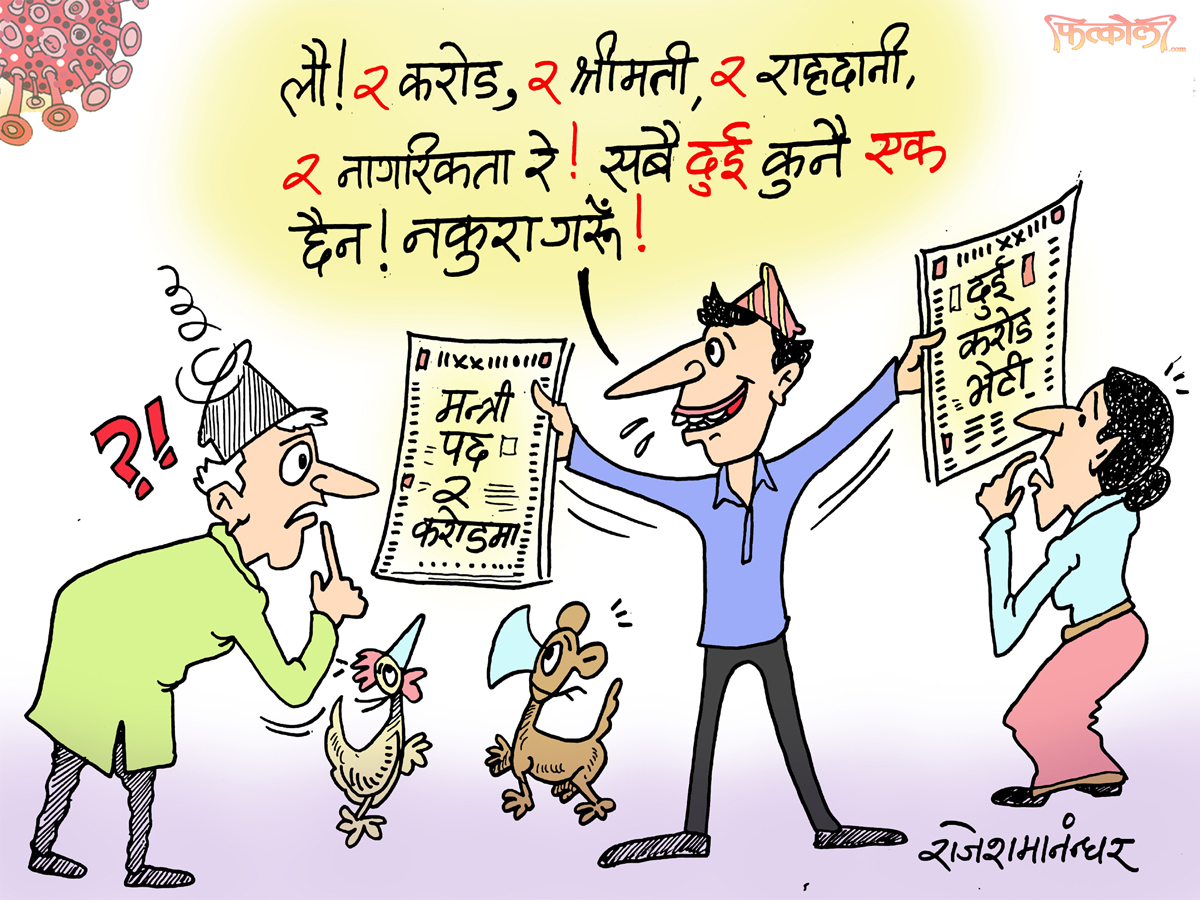 फत्कौली
.com
लौ! २ करोड, २ श्रीमती, २ राहदानी,
२ नागरिकता रे! सबै दुई कुनै एक
छैन! नकुरा गरूँ!
?!
मन्त्री
पद
२
करोडमा
दुई
करोड
भेटी
राजेशमानन्धर